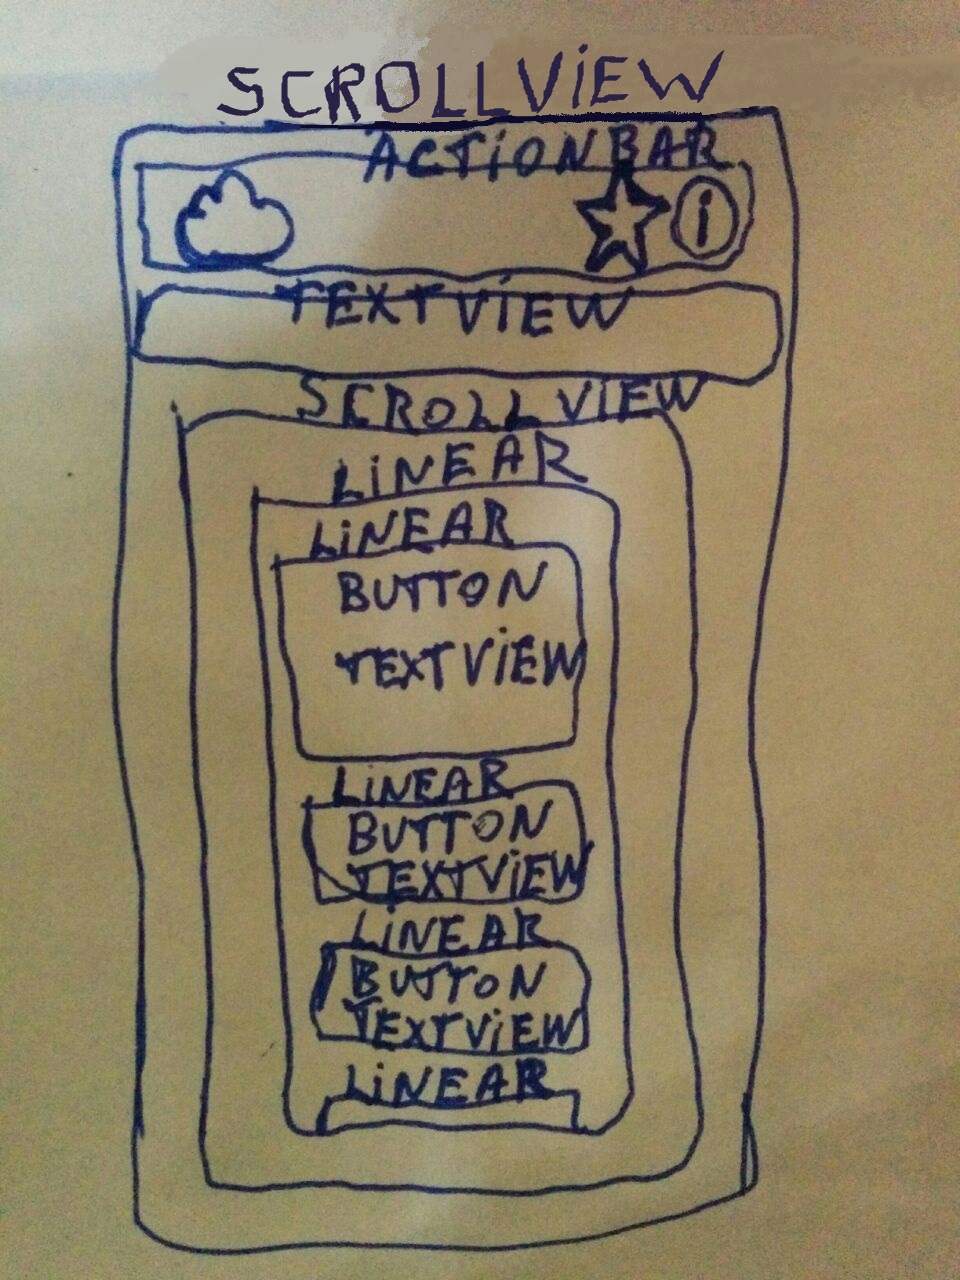 SCROLLViEW
ACTiONBAR
i
TEXTViEW
SCROLLVIEW
LiNEAR
LiNEAR
BUTTON
TEXTViEW
LiNEAR
BUTTON
TEXTViEW
LiNEAR
BUTTON
TEXTViEW
LiNEAR